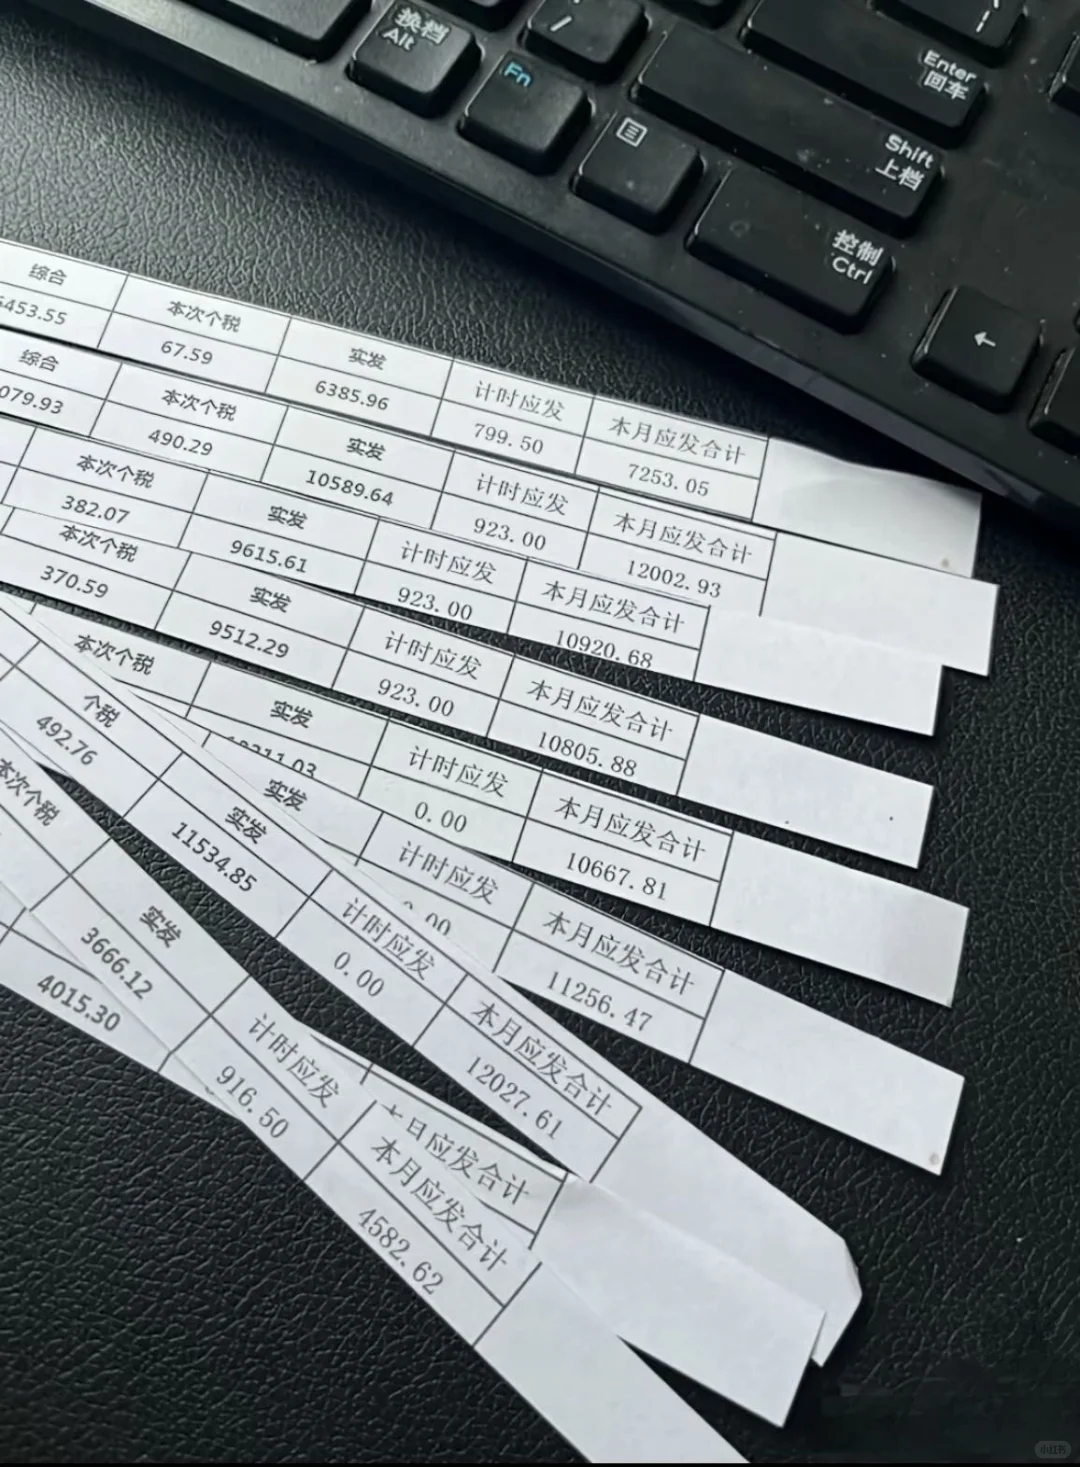 换档
Alt
/
Fn
Enter
回车
Shift
上档
控制
Ctrl
←
综合 本次个税 实发 计时应发 本月应发合计
6453.55 67.59 6385.96 799.50 7253.05
综合 本次个税 实发 计时应发 本月应发合计
079.93 490.29 10589.64 923.00 12002.93
本次个税 实发 计时应发 本月应发合计
382.07 9615.61 923.00 10920.68
本次个税 实发 计时应发 本月应发合计
370.59 9512.29 923.00 10805.88
本次个税 实发 计时应发 本月应发合计
0.00 10667.81
实发 计时应发 本月应发合计
11256.47
个税 实发 计时应发 本月应发合计
492.76 11534.85 0.00 12027.61
本月应发合计
4015.30
本次个税 实发 计时应发 本月应发合计
3666.12 916.50 4582.62
小红书